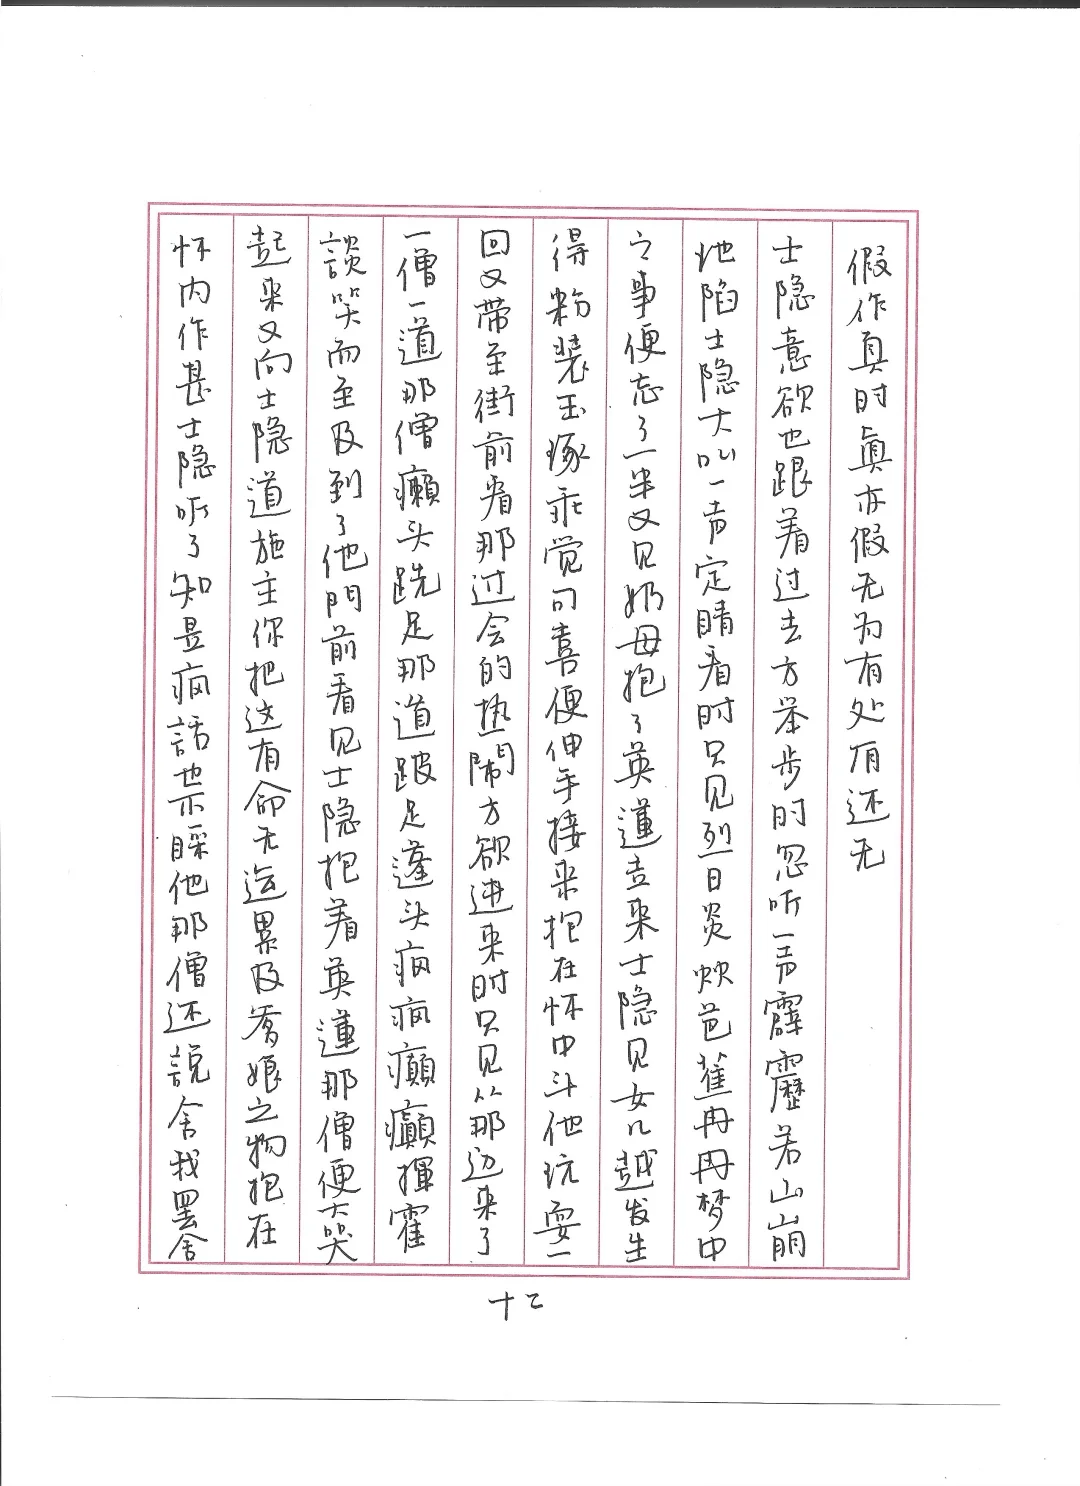 假作真时真亦假无为有处有还无
士隐意欲也跟着过去方举步时忽听一声霹靂若山崩
地陷士隐大叫一声定睛看时只见烈日炎炎芭蕉冉冉梦中
之事便忘了一半又见奶母抱了英蓮走来士隐见女儿越发生
得粉装玉琢乖觉可喜便伸手接来抱在怀中斗他玩耍一
回又带至街前看那过会的热鬧方欲进来时只见从那边来了
一僧一道那僧癞头跣足那道跛足蓬头疯疯癲癲揮霍
談笑而至及到了他門前看见士隐抱着英蓮那僧便大哭
起来又向士隐道施主你把这有命无运累及爹娘之物抱在
怀内作甚士隐听了知是疯話也不睬他那僧还説舍我罢舍
十二